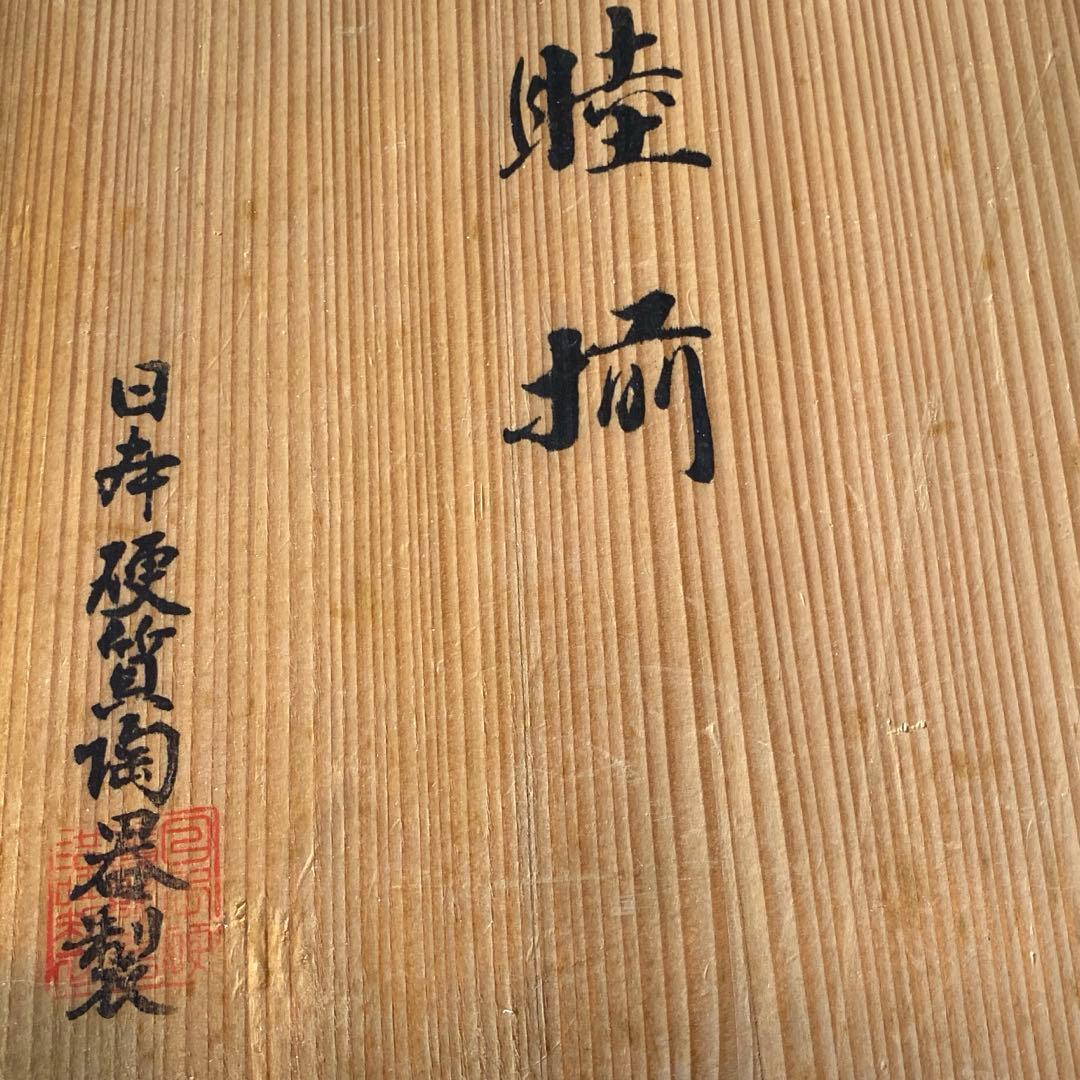 睦揃
日本硬質陶器製